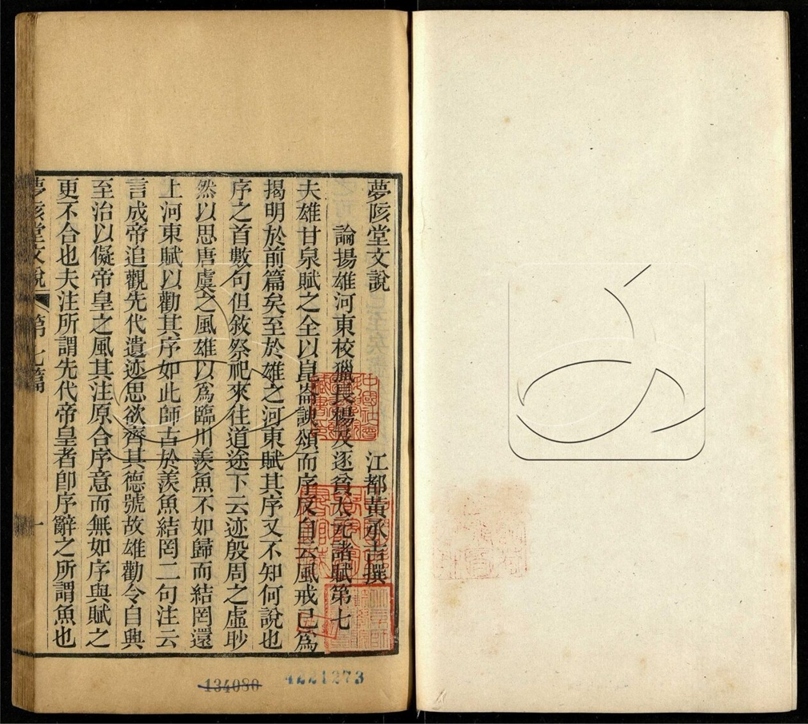 夢陔堂文說
江都黃承吉撰
論揚雄河東校獵長楊及逐貧太元諸賦第七
夫雄甘泉賦之全以崑崙諛頌而序反自云風戒已爲
揭明於前篇矣至於雄之河東賦其序又不知何說也
序之首數句但敘祭祀來往道途下云迹殷周之虛眇
然以思唐虞之風雄以爲臨川羨魚不如歸而結罔還
上河東賦以勸其序如此師古於羨魚結罔二句注云
言成帝追觀先代遺迹思欲齊其德號故雄勸令自興
至治以儗帝皇之風其注原合序意而無如序與賦之
更不合也夫注所謂先代帝皇者卽序辭之所謂魚也
夢陔堂文說
第七篇
一
134080
4221273